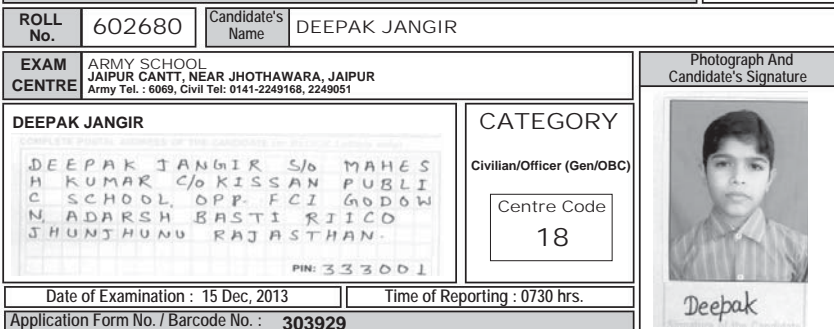 ROLL No. 602680 Candidate's Name DEEPAK JANGIR
EXAM CENTRE
ARMY SCHOOL
JAIPUR CANTT, NEAR JHOTHAWARA, JAIPUR
Army Tel. : 6069, Civil Tel: 0141-2249168, 2249051
Photograph And
Candidate's Signature
DEEPAK JANGIR
COMPLETE POSTAL ADDRESS OF THE CANDIDATE
DEEPAK JANGIR S/o MAHES
H KUMAR C/o KISSAN PUBLI
C SCHOOL, OPP. FCI GODOW
N, ADARSH BASTI RIICO
JHUNJHUNU RAJASTHAN.
PIN: 333001
CATEGORY
Civilian/Officer (Gen/OBC)
Centre Code
18
Deepak
Date of Examination : 15 Dec, 2013 Time of Reporting : 0730 hrs.
Application Form No. / Barcode No. : 303929